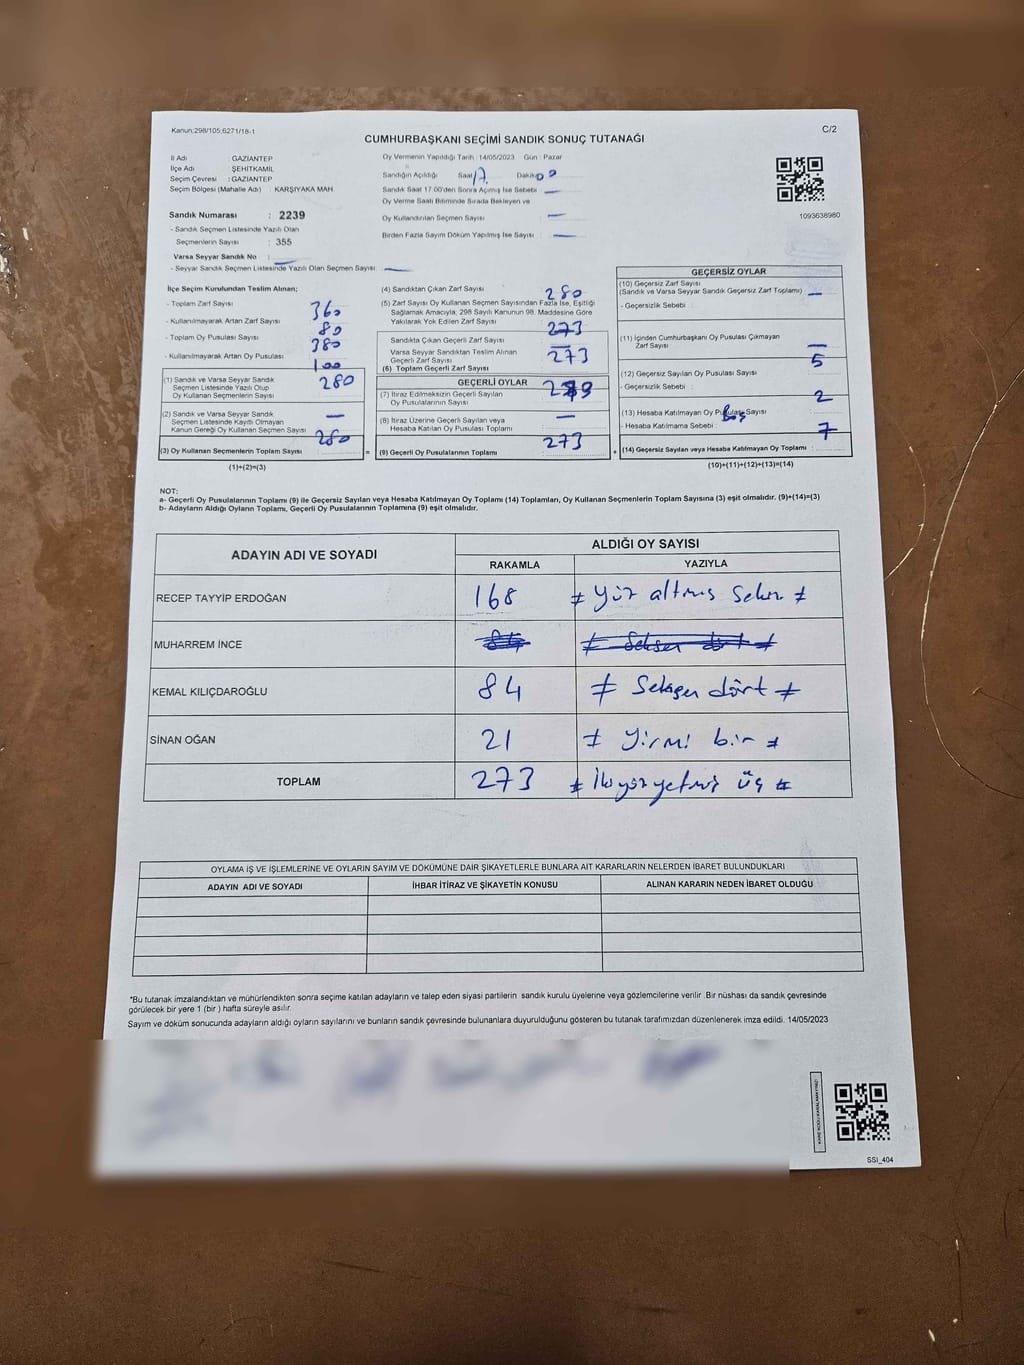 Kanun;298/105;6271/18-1
C/2
CUMHURBAŞKANI SEÇİMİ SANDIK SONUÇ TUTANAĞI
İl Adı : GAZİANTEP
İlçe Adı : ŞEHİTKAMİL
Seçim Çevresi : GAZİANTEP
Seçim Bölgesi (Mahalle Adı) : KARŞIYAKA MAH.
Sandık Numarası : 2239
- Sandık Seçmen Listesinde Yazılı Olan
Seçmenlerin Sayısı : 355
Varsa Seyyar Sandık No : —
- Seyyar Sandık Seçmen Listesinde Yazılı Olan Seçmen Sayısı : —
Oy Vermenin Yapıldığı Tarih : 14/05/2023 Gün : Pazar
Sandığın Açıldığı Saat 17 Dakika 00
Sandık Saat 17:00'den Sonra Açılmış İse Sebebi : —
Oy Verme Saati Bitiminde Sırada Bekleyen ve
Oy Kullandırılan Seçmen Sayısı : —
Birden Fazla Sayım Döküm Yapılmış İse Sayısı : —
1093638980
İlçe Seçim Kurulundan Teslim Alınan;
- Toplam Zarf Sayısı 360
- Kullanılmayarak Artan Zarf Sayısı 80
- Toplam Oy Pusulası Sayısı 380
- Kullanılmayarak Artan Oy Pusulası 100
(1) Sandık ve Varsa Seyyar Sandık
Seçmen Listesinde Yazılı Olup
Oy Kullanan Seçmenlerin Sayısı 280
(2) Sandık ve Varsa Seyyar Sandık
Seçmen Listesinde Kayıtlı Olmayan
Kanun Gereği Oy Kullanan Seçmen Sayısı —
(3) Oy Kullanan Seçmenlerin Toplam Sayısı 280
(1)+(2)=(3)
(4) Sandıktan Çıkan Zarf Sayısı 280
(5) Zarf Sayısı Oy Kullanan Seçmen Sayısından Fazla İse, Eşitliği
Sağlamak Amacıyla, 298 Sayılı Kanunun 98. Maddesine Göre
Yakılarak Yok Edilen Zarf Sayısı
Sandıkta Çıkan Geçerli Zarf Sayısı 273
Varsa Seyyar Sandıktan Teslim Alınan
Geçerli Zarf Sayısı —
(6) Toplam Geçerli Zarf Sayısı 273
GEÇERLİ OYLAR
(7) İtiraz Edilmeksizin Geçerli Sayılan
Oy Pusulalarının Sayısı
(8) İtiraz Üzerine Geçerli Sayılan veya
Hesaba Katılan Oy Pusulası Toplamı —
(9) Geçerli Oy Pusulalarının Toplamı 273
GEÇERSİZ OYLAR
(10) Geçersiz Zarf Sayısı
(Sandık ve Varsa Seyyar Sandık Geçersiz Zarf Toplamı) —
- Geçersizlik Sebebi :
(11) İçinden Cumhurbaşkanı Oy Pusulası Çıkmayan
Zarf Sayısı —
(12) Geçersiz Sayılan Oy Pusulası Sayısı 5
- Geçersizlik Sebebi :
(13) Hesaba Katılmayan Oy Pusulası Sayısı 2
- Hesaba Katılmama Sebebi : Boş
(14) Geçersiz Sayılan veya Hesaba Katılmayan Oy Toplamı 7
(10)+(11)+(12)+(13)=(14)
NOT:
a- Geçerli Oy Pusulalarının Toplamı (9) ile Geçersiz Sayılan veya Hesaba Katılmayan Oy Toplamı (14) Toplamları, Oy Kullanan Seçmenlerin Toplam Sayısına (3) eşit olmalıdır. (9)+(14)=(3)
b- Adayların Aldığı Oyların Toplamı, Geçerli Oy Pusulalarının Toplamına (9) eşit olmalıdır.
ADAYIN ADI VE SOYADI ALDIĞI OY SAYISI
RAKAMLA YAZIYLA
RECEP TAYYİP ERDOĞAN 168 ≠ Yüz altmış sekiz ≠
MUHARREM İNCE 84 ≠ Seksen dört ≠
KEMAL KILIÇDAROĞLU 84 ≠ Seksen dört ≠
SİNAN OĞAN 21 ≠ Yirmi bir ≠
TOPLAM 273 ≠ İkiyüzyetmiş üç ≠
OYLAMA İŞ VE İŞLEMLERİNE VE OYLARIN SAYIM VE DÖKÜMÜNE DAİR ŞİKAYETLERLE BUNLARA AİT KARARLARIN NELERDEN İBARET BULUNDUKLARI
ADAYIN ADI VE SOYADI İHBAR İTİRAZ VE ŞİKAYETİN KONUSU ALINAN KARARIN NEDEN İBARET OLDUĞU
*Bu tutanak imzalandıktan ve mühürlendikten sonra seçime katılan adayların ve talep eden siyasi partilerin sandık kurulu üyelerine veya gözlemcilerine verilir. Bir nüshası da sandık çevresinde
görülecek bir yere 1 (bir) hafta süreyle asılır.
Sayım ve döküm sonucunda adayların aldığı oyların sayılarını ve bunların sandık çevresinde bulunanlara duyurulduğunu gösteren bu tutanak tarafımızdan düzenlenerek imza edildi. 14/05/2023
KARE KODU KARALAMAYINIZ!
SSI_404